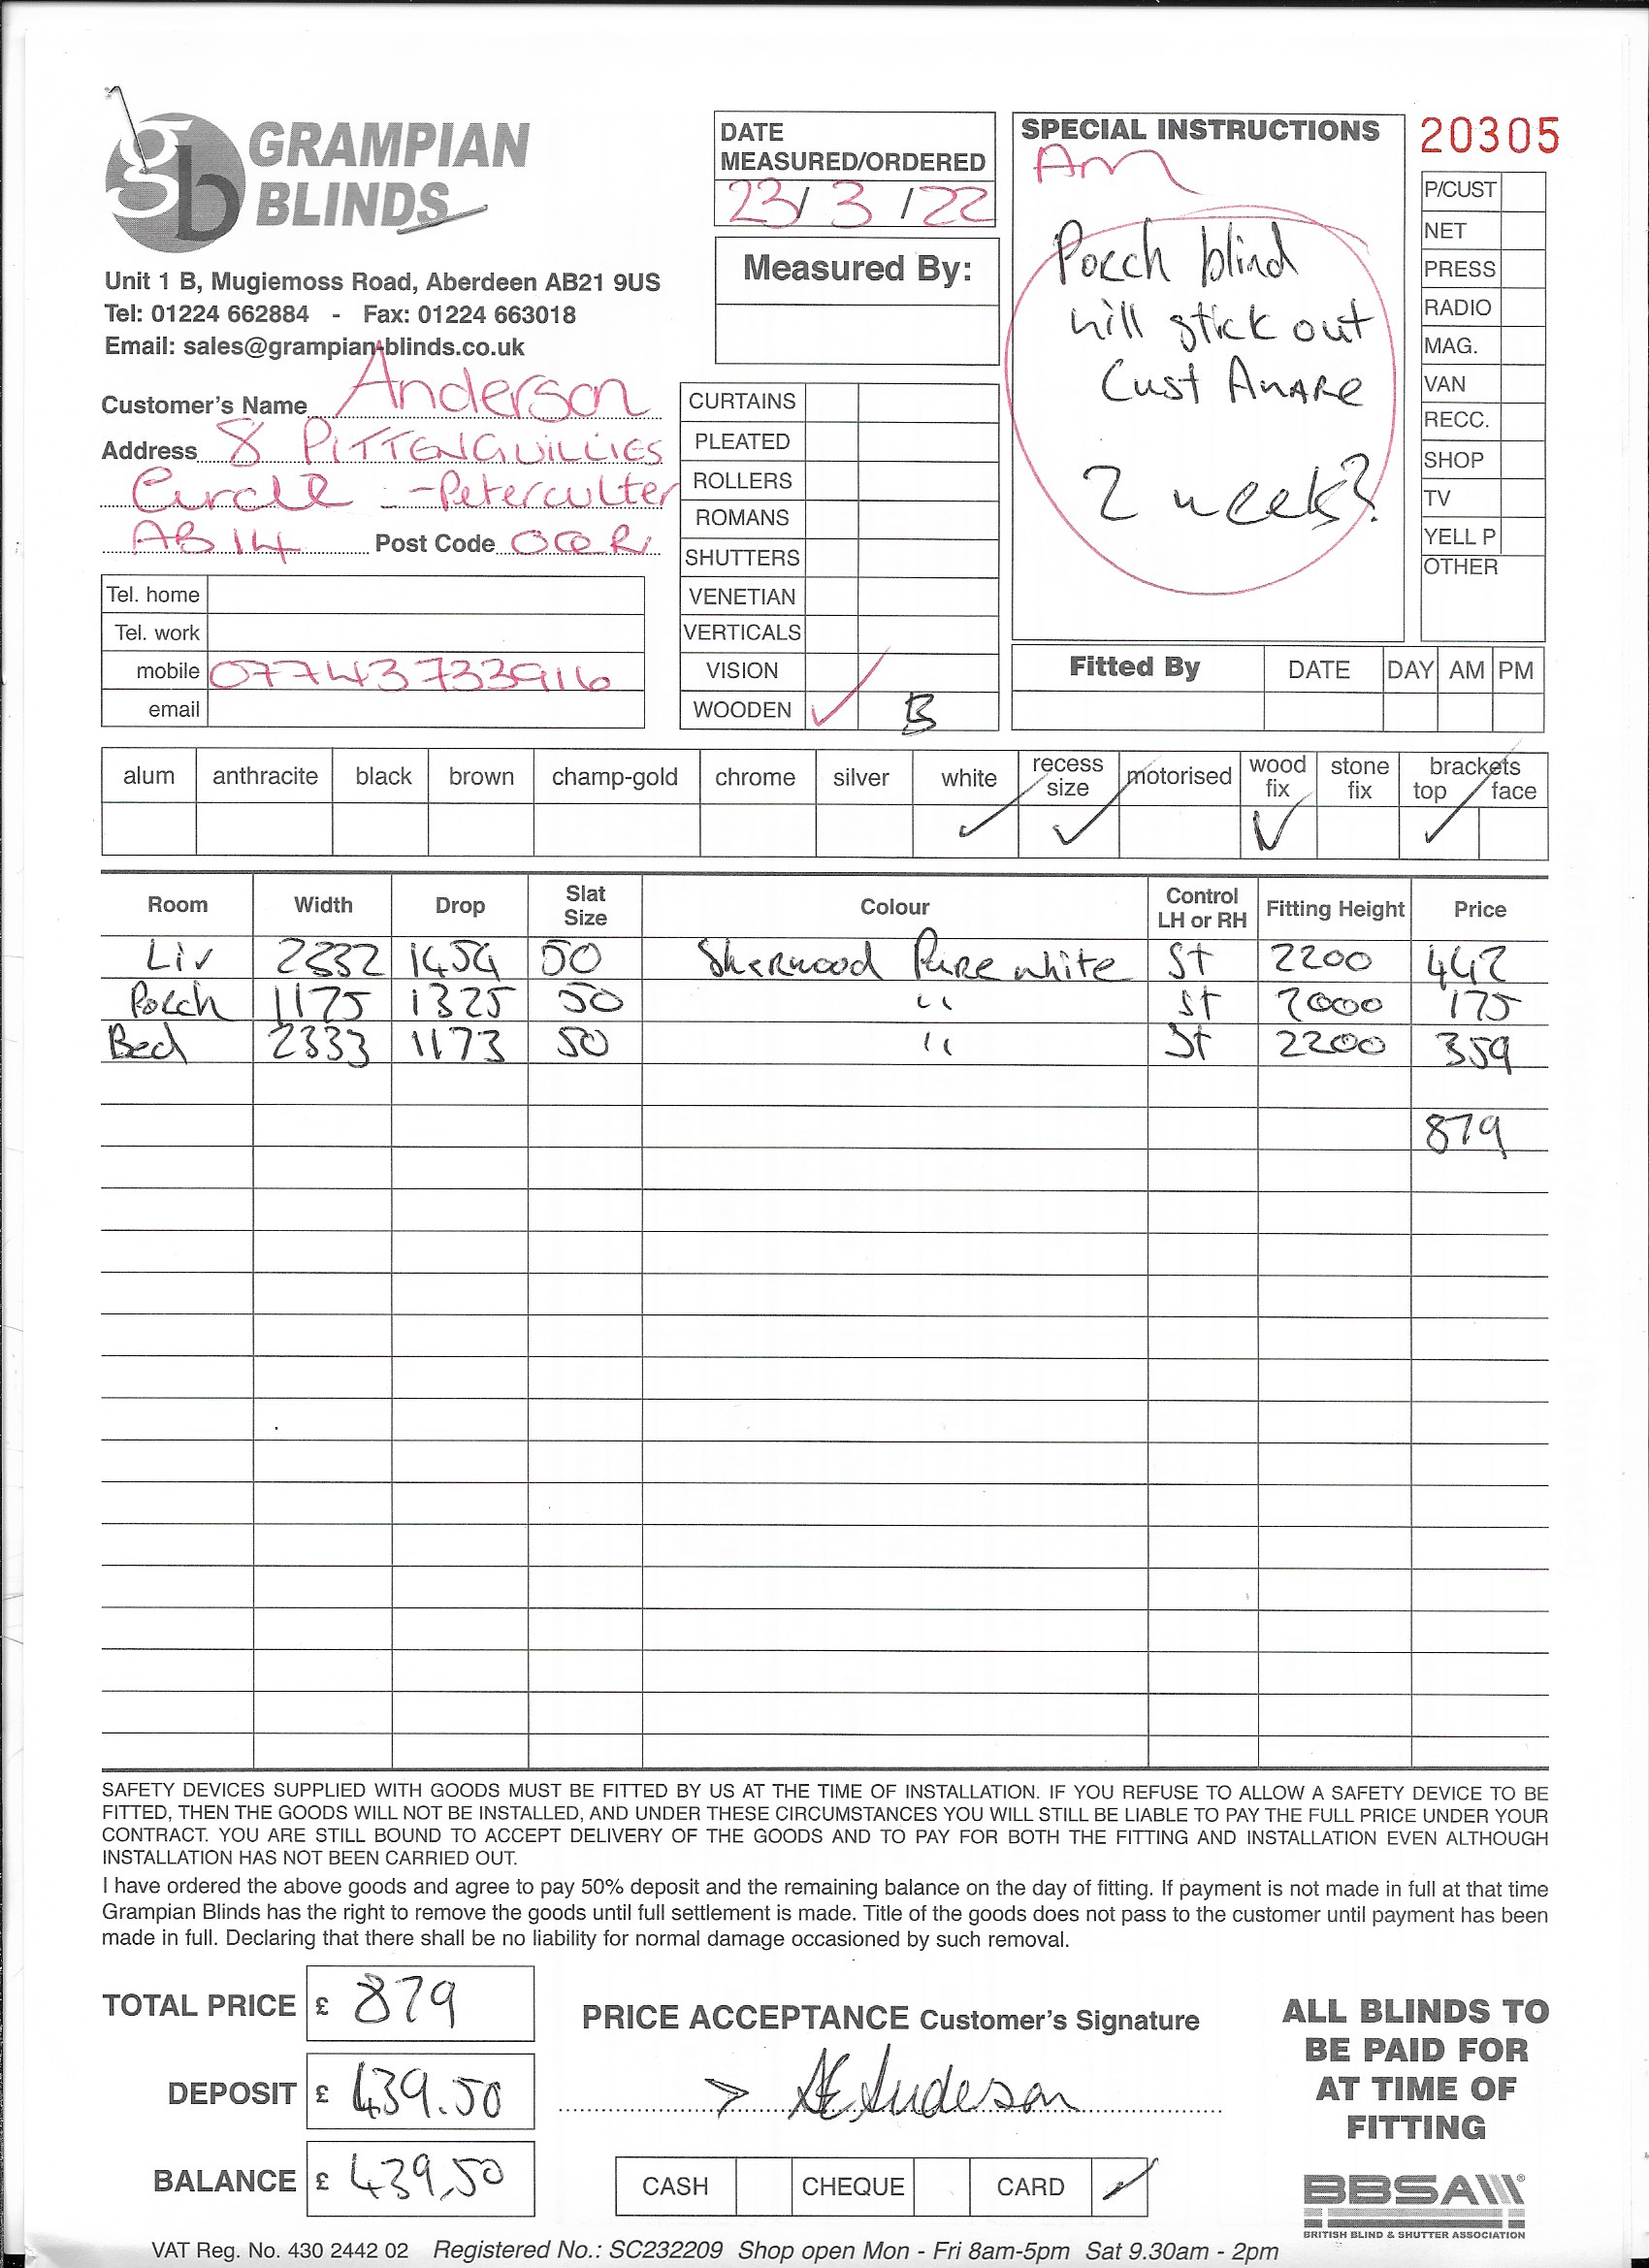 gb GRAMPIAN
BLINDS
Unit 1 B, Mugiemoss Road, Aberdeen AB21 9US
Tel: 01224 662884 - Fax: 01224 663018
Email: sales@grampian-blinds.co.uk
Customer's Name Anderson
Address 8 PITTENGUILLIES
Circle - Peterculter
AB14 Post Code 0QR
Tel. home
Tel. work
mobile 07743733916
email
DATE
MEASURED/ORDERED
23/3/22
Measured By:
CURTAINS
PLEATED
ROLLERS
ROMANS
SHUTTERS
VENETIAN
VERTICALS
VISION
WOODEN ✓ B
SPECIAL INSTRUCTIONS
Am
Porch blind
will stick out
Cust Aware
2 weeks?
20305
P/CUST
NET
PRESS
RADIO
MAG.
VAN
RECC.
SHOP
TV
YELL P
OTHER
Fitted By DATE DAY AM PM
alum anthracite black brown champ-gold chrome silver white recess size motorised wood fix stone fix brackets top face
✓ ✓ ✓ ✓
Room Width Drop Slat Size Colour Control LH or RH Fitting Height Price
Liv 2332 1454 50 Sherwood Pure white St 2200 442
Porch 1175 1325 50 " St 2000 175
Bed 2333 1173 50 " St 2200 359
879
SAFETY DEVICES SUPPLIED WITH GOODS MUST BE FITTED BY US AT THE TIME OF INSTALLATION. IF YOU REFUSE TO ALLOW A SAFETY DEVICE TO BE
FITTED, THEN THE GOODS WILL NOT BE INSTALLED, AND UNDER THESE CIRCUMSTANCES YOU WILL STILL BE LIABLE TO PAY THE FULL PRICE UNDER YOUR
CONTRACT. YOU ARE STILL BOUND TO ACCEPT DELIVERY OF THE GOODS AND TO PAY FOR BOTH THE FITTING AND INSTALLATION EVEN ALTHOUGH
INSTALLATION HAS NOT BEEN CARRIED OUT.
I have ordered the above goods and agree to pay 50% deposit and the remaining balance on the day of fitting. If payment is not made in full at that time
Grampian Blinds has the right to remove the goods until full settlement is made. Title of the goods does not pass to the customer until payment has been
made in full. Declaring that there shall be no liability for normal damage occasioned by such removal.
TOTAL PRICE £ 879
DEPOSIT £ 439.50
BALANCE £ 439.50
PRICE ACCEPTANCE Customer's Signature
AE Anderson
CASH CHEQUE CARD ✓
ALL BLINDS TO
BE PAID FOR
AT TIME OF
FITTING
BBSA
BRITISH BLIND & SHUTTER ASSOCIATION
VAT Reg. No. 430 2442 02 Registered No.: SC232209 Shop open Mon - Fri 8am-5pm Sat 9.30am - 2pm